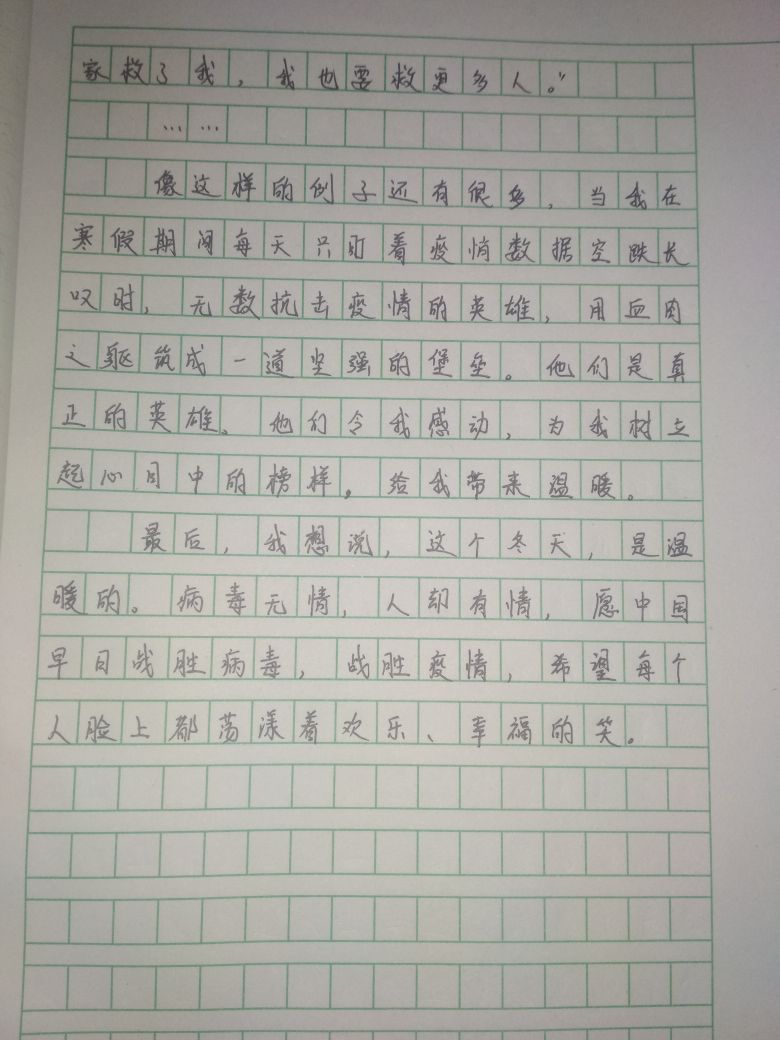 家救了我，我也要救更多人。”
……
像这样的例子还有很多，当我在
寒假期间每天只盯着疫情数据空跌长
叹时，无数抗击疫情的英雄，用血肉
之躯筑成一道坚强的堡垒。他们是真
正的英雄。他们令我感动，为我树立
起心目中的榜样。给我带来温暖。
最后，我想说，这个冬天，是温
暖的。病毒无情，人却有情，愿中国
早日战胜病毒，战胜疫情，希望每个
人脸上都荡漾着欢乐、幸福的笑。